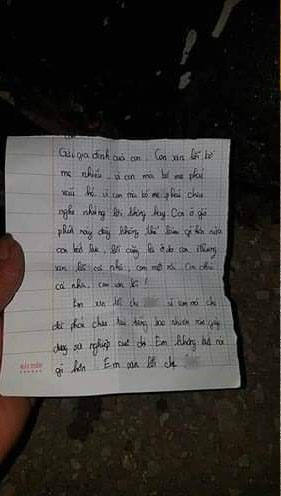 Gửi gia đình của con. Con xin lỗi bố
mẹ nhiều, vì con mà bố mẹ phải
xấu hổ, vì con mà bố mẹ phải chịu
nghe những lời không hay. Con ở giờ
phút này đây không thể làm gì hơn nữa
con bất lực, lỗi cũng là ở do con
xin lỗi cả nhà, con mệt rồi. Con chào
cả nhà, con xin lỗi!
Em xin lỗi chị vì em mà chị
đã phải chịu tai tiếng bao nhiêu năm gây
dựng sự nghiệp Em không biết nói
gì hơn Em xin lỗi chị